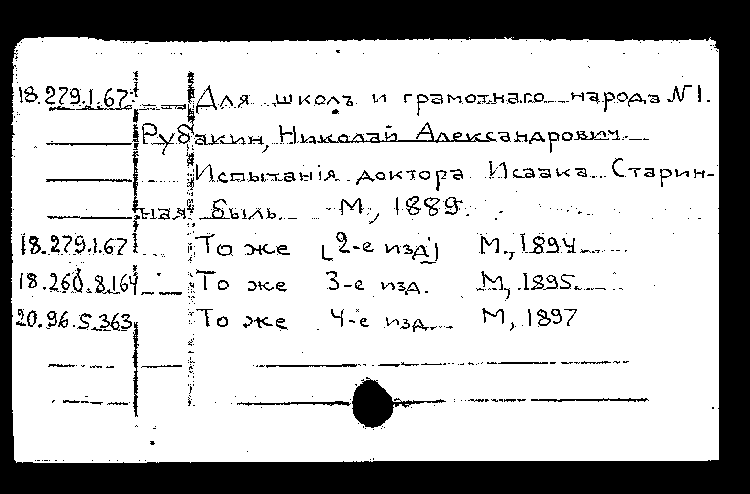 18.279.1.67. Для школъ и грамотнаго народа № 1.
Рубакин, Николай Александрович.
Испытанія доктора Исаака. Старин-
ная быль. М., 1889.
18.279.1.67 То же [2-е изд.] М., 1894
18.260.8.164 То же 3-е изд. М., 1895.
20.96.5.363 То же 4-е изд. М., 1897